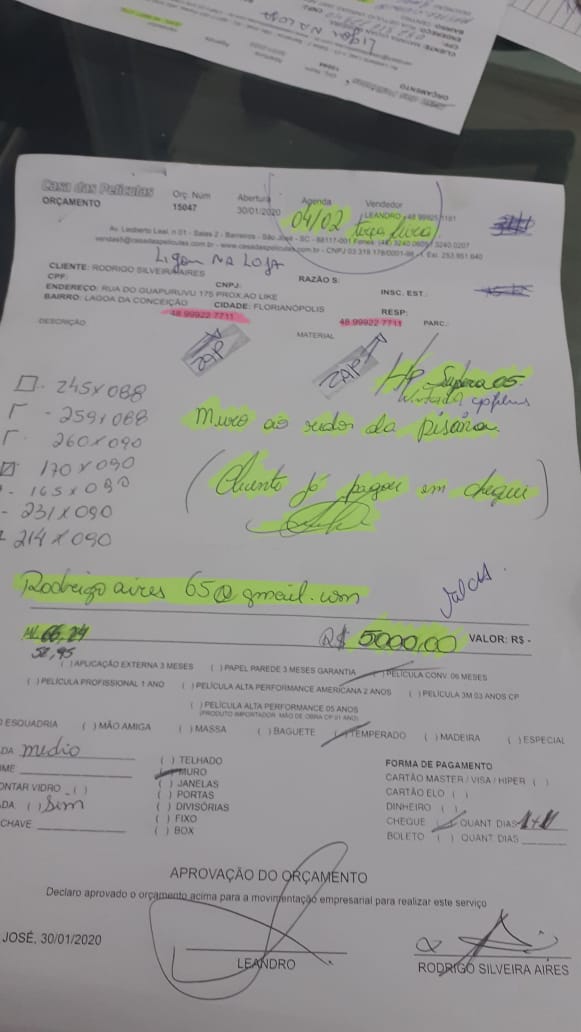 Casa das Películas
ORÇAMENTO
Orç. Núm
15047
Abertura
30/01/2020
Agenda
04/02 terça feira
Vendedor
LEANDRO - 48 99925 1191
Av. Leoberto Leal, n 01 - Salas 2 - Barreiros - São José - SC - 88117-001 Fones: (48) 3240 0605 / 3240 0207
Ligou NA LOJA
CLIENTE: RODRIGO SILVEIRA AIRES
RAZÃO S:
CPF:
CNPJ:
INSC. EST.:
ENDEREÇO: RUA DO GUAPURUVU 175 PROX.AO LIKE
BAIRRO: LAGOA DA CONCEIÇÃO
CIDADE: FLORIANÓPOLIS
RESP:
48 99922 7711
48 99922 7711
PARC.:
DESCRIÇÃO
MATERIAL
ZAP
ZAP
HP Supera 05
245x088
259x088
260x090
170x090
165x090
231x090
214x090
Muro ao redor da piscina.
(Cliente já pagou em chequi)
Rodrigo aires 65@gmail.com
66,24
52,95
R$ 5000,00
VALOR: R$ -
( ) APLICAÇÃO EXTERNA 3 MESES ( ) PAPEL PAREDE 3 MESES GARANTIA ( ) PELÍCULA CONV. 06 MESES
( ) PELÍCULA PROFISSIONAL 1 ANO ( ) PELÍCULA ALTA PERFORMANCE AMERICANA 2 ANOS ( ) PELÍCULA 3M 03 ANOS CP
( ) PELÍCULA ALTA PERFORMANCE 05 ANOS
(PRODUTO IMPORTADOR- MÃO DE OBRA CP 01 ANO)
ESQUADRIA ( ) MÃO AMIGA ( ) MASSA ( ) BAGUETE ( ) TEMPERADO ( ) MADEIRA ( ) ESPECIAL
DA medio
( ) TELHADO
FORMA DE PAGAMENTO
ME
( ) MURO
CARTÃO MASTER / VISA / HIPER ( )
( ) JANELAS
CARTÃO ELO ( )
ONTAR VIDRO ( )
( ) PORTAS
DINHEIRO ( )
DA ( ) Sim
( ) DIVISÓRIAS
CHEQUE ( ) QUANT DIAS 1+1
CHAVE
( ) FIXO
BOLETO ( ) QUANT DIAS
( ) BOX
APROVAÇÃO DO ORÇAMENTO
Declaro aprovado o orçamento acima para a movimentação empresarial para realizar este serviço
JOSÉ, 30/01/2020
LEANDRO
RODRIGO SILVEIRA AIRES